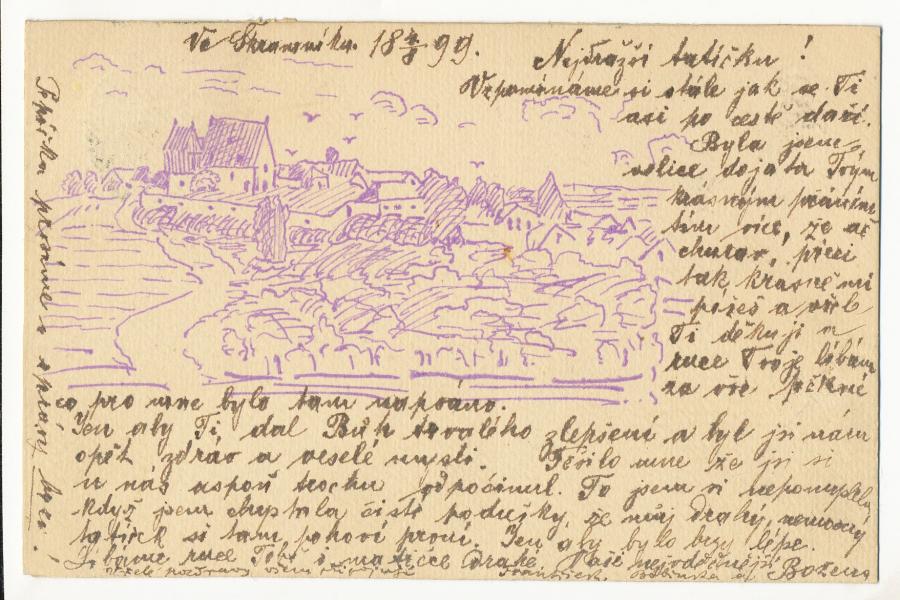 Ve Skramníku. 18 4/8 99.
Nejdražší tatíčku!
Vzpomínáme si stále jak se Ti
asi po cestě daří.
Byla jsem
velice dojata Tvým
krásným přáním
tím více, že ač
churav, přeci
tak krásně mi
píšeš a vřele
Ti děkuji a
ruce Tvoje líbám
za vše pěkné
co pro mne bylo tam napsáno.
Jen aby Ti dal Bůh trvalého zlepšení a byl jsi nám
opět zdráv a veselé mysli. Těšilo mne že jsi si
u nás aspoň trochu odpočinul. To jsem si nepomyslila
když jsem chystala čisté podušky, že můj drahý, nemocný
tatíček si tam pohoví první. Jen aby bylo brzy lépe.
Líbáme ruce Tobě i matičce drahé. Vaši nejvděčnější
Božena
pozdravy všem
prosíme o zprávy